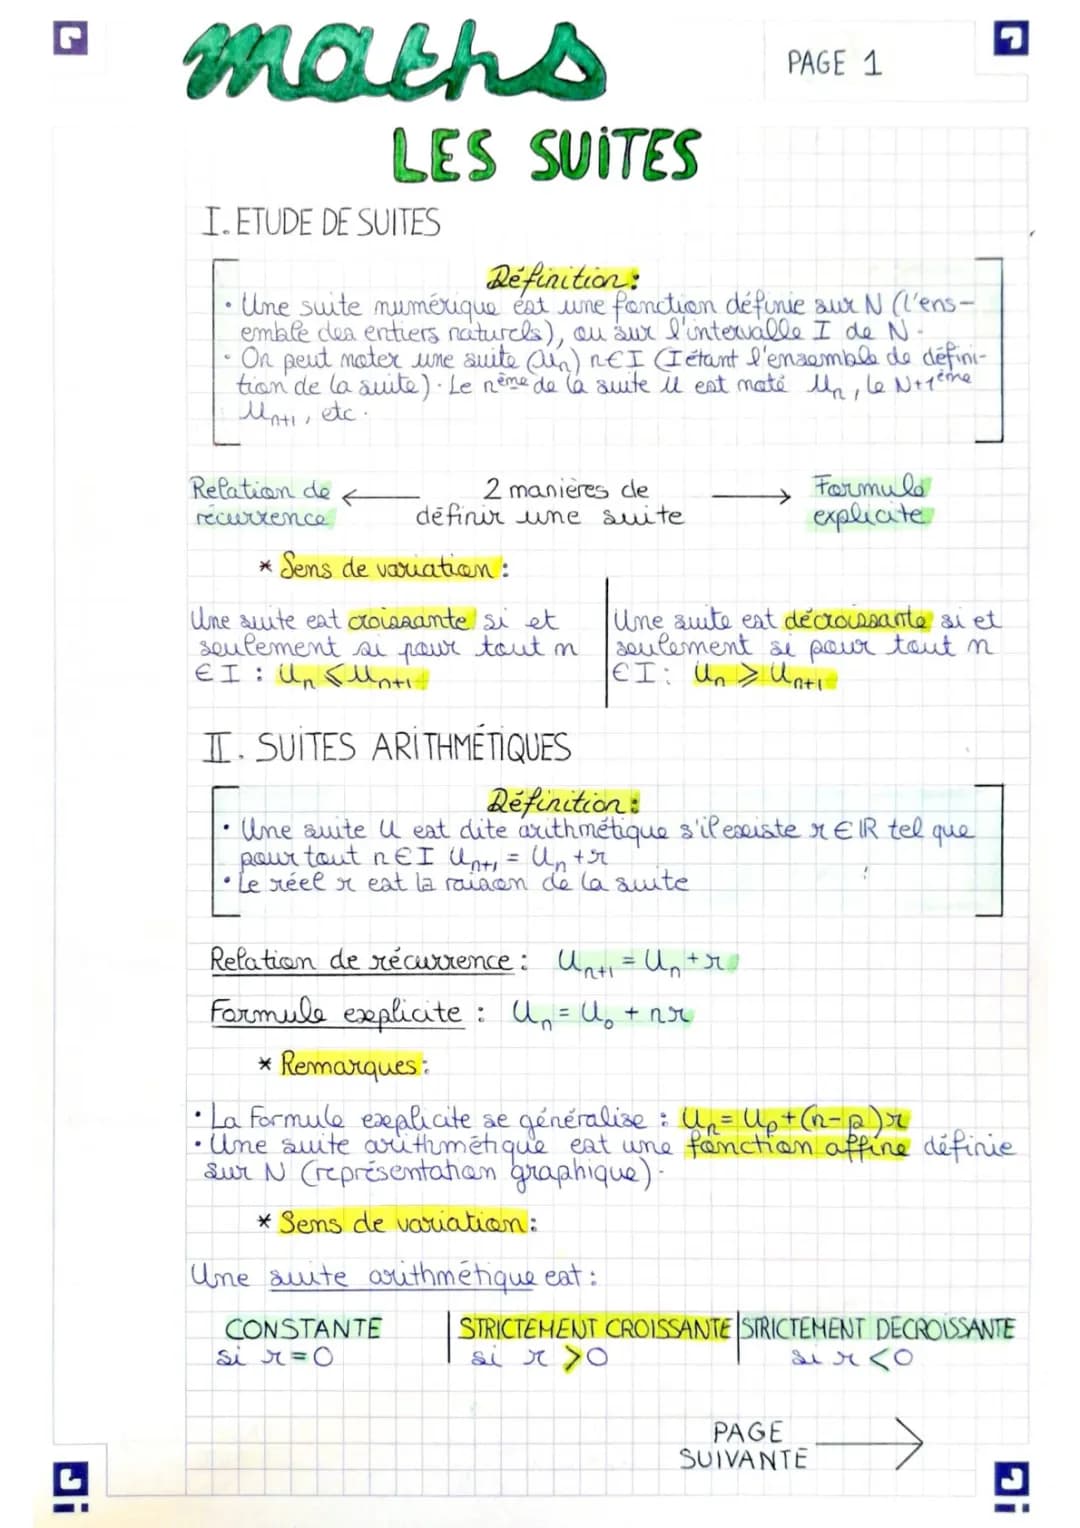 maths
PAGE 1
LES SUITES
I. ETUDE DE SUITES
Définition :
• Une suite numérique est une fonction définie sur N (l'ens-
emble des entiers naturels), ou sur l'intervalle I de N.
• On peut noter une suite (Un) n∈I (I étant l'ensemble de défini-
tion de la suite). Le nème de la suite U est noté Un, le N+1ème
Un+1, etc.
Relation de récurrence ← 2 manières de définir une suite → Formule explicite
* Sens de variation :
Une suite est croissante si et
seulement si pour tout n
∈ I : Un ⩽ Un+1
Une suite est décroissante si et
seulement si pour tout n
∈ I : Un ⩾ Un+1
II. SUITES ARITHMÉTIQUES
Définition :
• Une suite U est dite arithmétique s'il existe r ∈ IR tel que
pour tout n∈I Un+1 = Un + r
• Le réel r est la raison de la suite
Relation de récurrence : Un+1 = Un + r
Formule explicite : Un = U0 + nr
* Remarques :
• La Formule explicite se généralise : Un = Up + (n-p)r
• Une suite arithmétique est une fonction affine définie
sur N (représentation graphique).
* Sens de variation :
Une suite arithmétique est :
CONSTANTE
si r = 0
STRICTEMENT CROISSANTE
si r > 0
STRICTEMENT DECROISSANTE
si r < 0
PAGE
SUIVANTE →